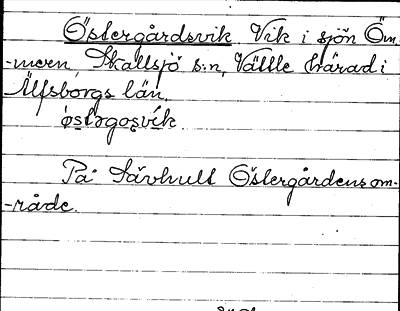 Östergårdsvik Vik i sjön Öm-
-mern, Skallsjö s:n, Vättle härad i
Älfsborgs län.
östərgoṣvík
På Sävhult Östergårdens om-
-råde.